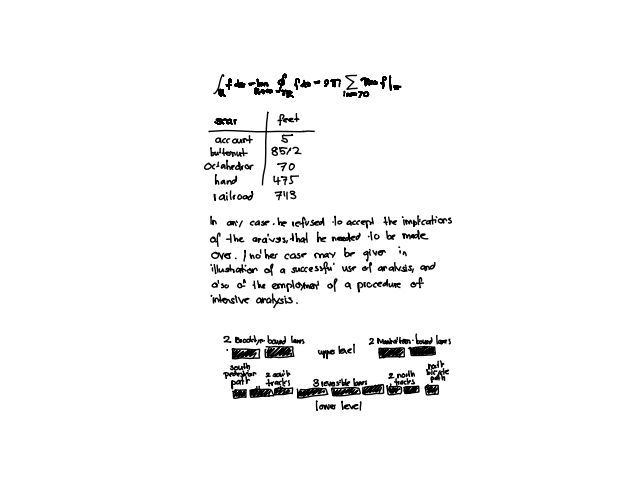 feet
account 5
butternut 8512
octahedron 70
hand 475
railroad 743
In any case he refused to accept the implications
of the analysis, that he needed to be made
over. Another case may be given in
illustration of a successful use of analysis, and
also of the employment of a procedure of
intensive analysis.
2 Brooklyn-bound lanes 2 Manhattan-bound lanes
upper level
south pedestrian path
2 south tracks
3 reversible lanes
2 north tracks
north bicycle path
lower level